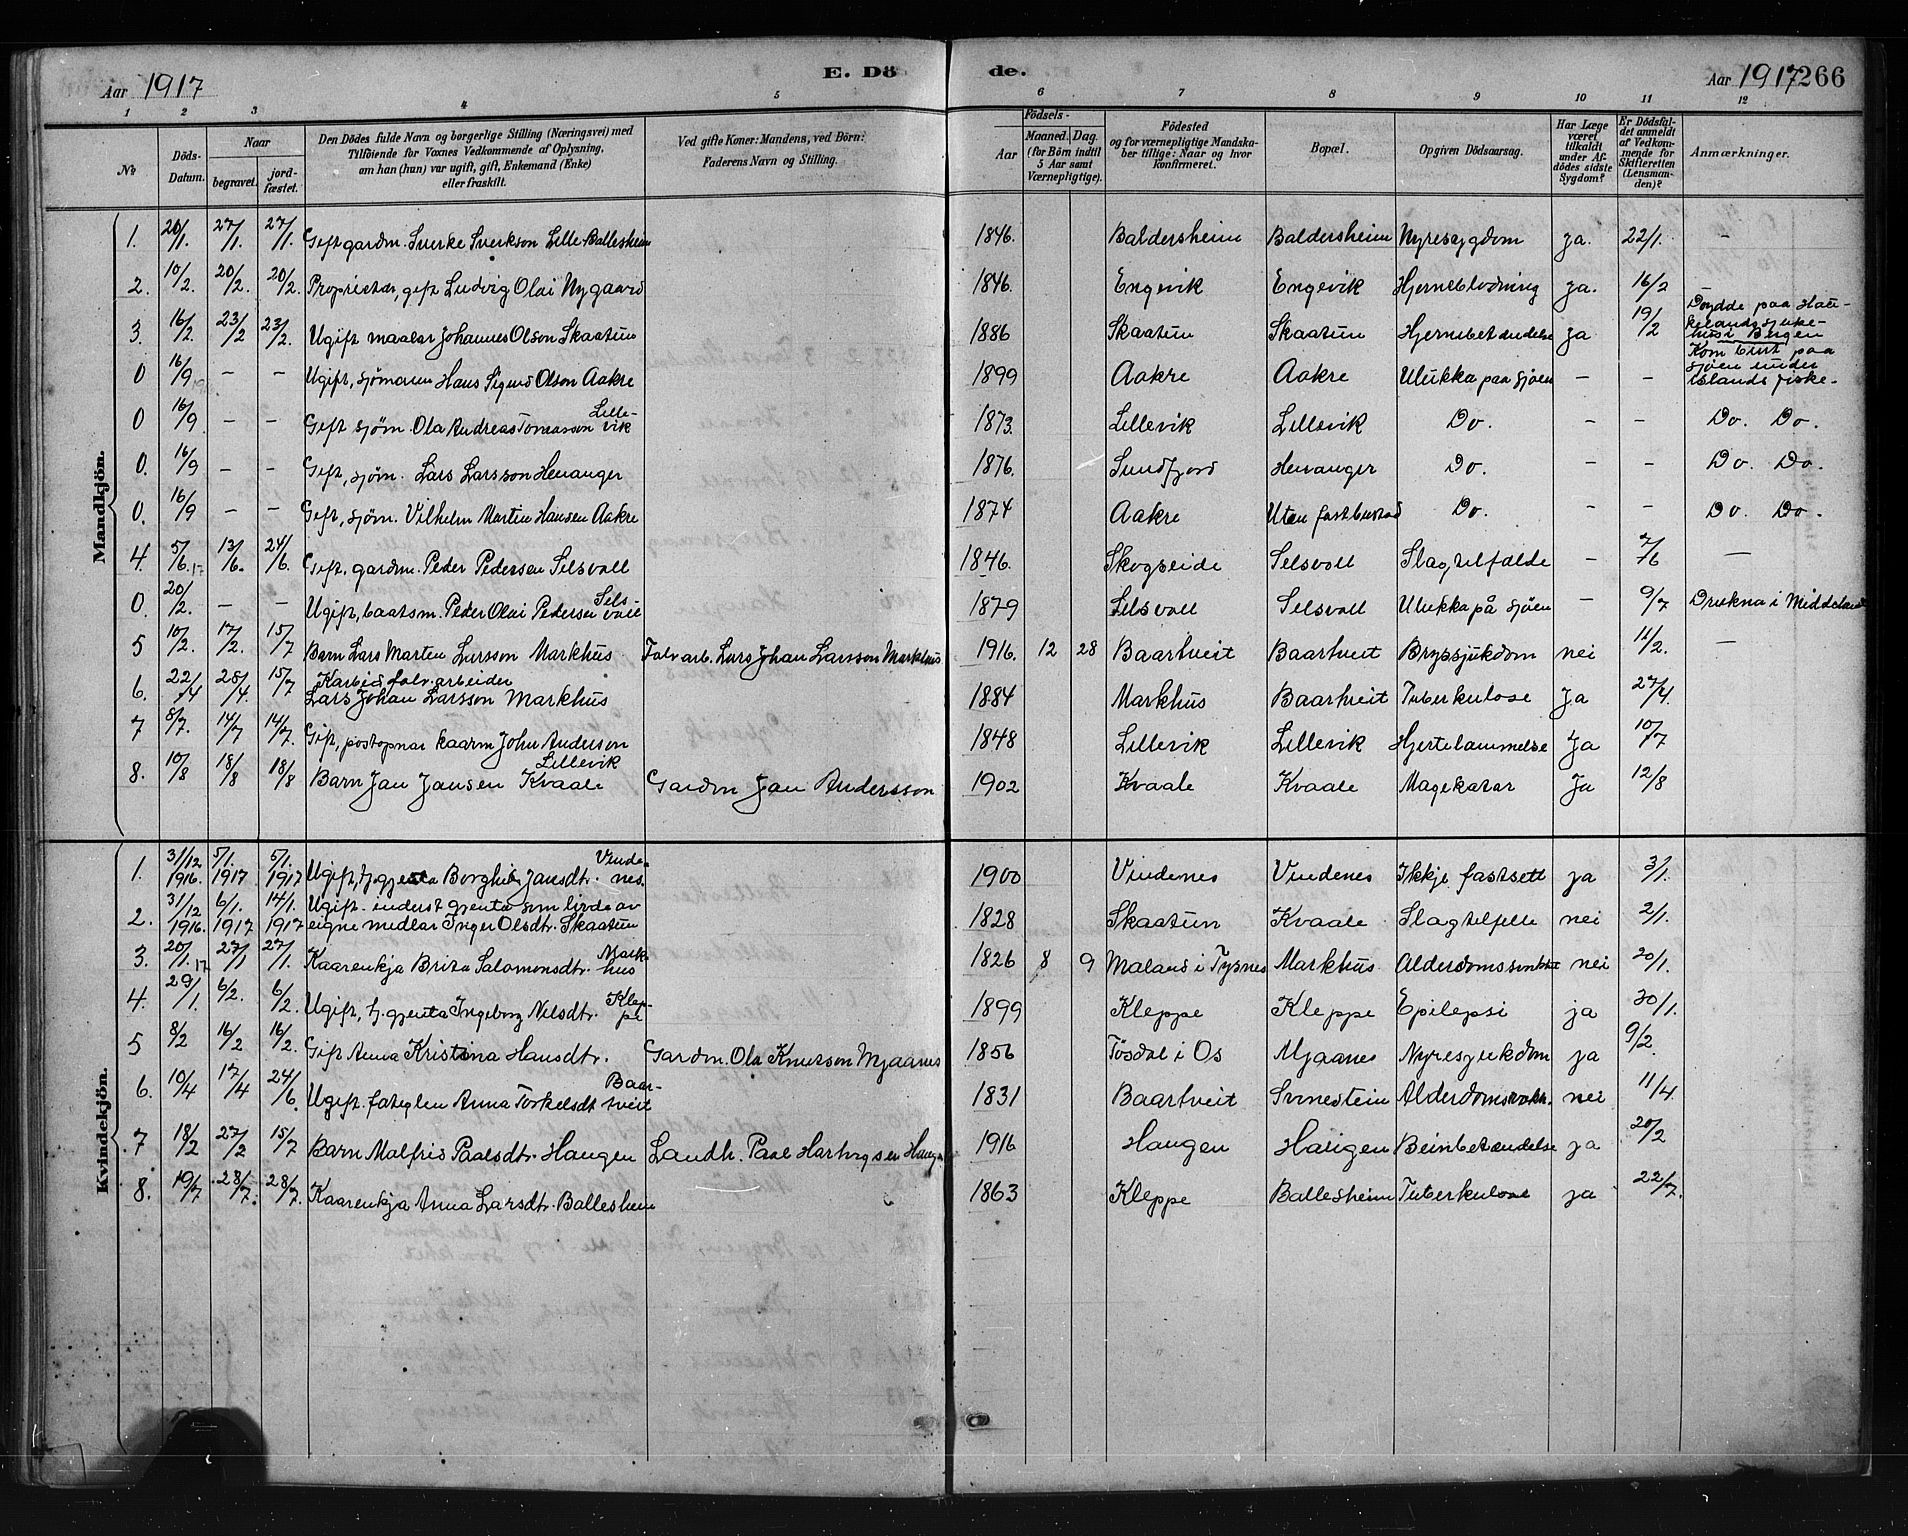 Aar 1917 E. Dö de. Aar 1917 266
1 2 3 4 5 6 7 8 9 10 11 12
No Döds-Datum. Naar begravet. jord-fæstet. Den Dödes fulde Navn og borgerlige Stilling (Næringsvei) med Tilföiende for Voxnes Vedkommende af Oplysning, om han (hun) var ugift, gift, Enkemand (Enke) eller fraskilt. Ved gifte Koner: Mandens, ved Börn: Faderens Navn og Stilling. Födsels- Aar Maaned. Dag. (for Börn indtil 5 Aar samt Værnepligtige). Födested og for værnepligtige Mandskaber tillige: Naar og hvor konfirmeret. Bopæl. Opgiven Dödsaarsag. Har Læge været tilkaldt under Afdödes sidste Sygdom? Er Dödsfaldet anmeldt af Vedkommende for Skifteretten (Lensmanden)? Anmærkninger.
Mandkjön.
1. 20/1. 27/1. 27/1. Gift gardm. Sverke Sverkson Lille-Ballesheim 1846. Baldersheim Baldersheim Nyresygdom ja. 22/1. -
2. 10/2. 20/2. 20/2. Proprietær, gift Ludvig Olai Nygaard 1846. Engevik Engevik Hjerneblodning ja. 16/2 -
3. 16/2. 23/2 23/2. Ugift maalar Johannes Olson Skaatun 1886 Skaatun Skaatun Hjernebetændelse ja 19/2 Doydde paa Haukelands sjukehus i Bergen
0 16/9 - - Ugift, sjömann Hans Sigurd Olson Aakre 1899 Aakre Aakre Ulukka paa sjøen - - Kom burt paa sjøen under Islands fiske-
0 16/9. - - Gift sjöm. Ola Andreas Tomasson Lille-vik 1873. Lillevik Lillevik Do. - - Do. Do.
0. 16/9 - - Gift, sjöm. Lars Larsson Hevanger 1876. Sundfjord Hevanger Do. - - Do. Do.
0. 16/9 - - Gift, sjöm. Vilhelm Martin Hansen Aakre 1874 Aakre Uten fast bustad Do. - - Do. Do.
4. 5/6.17 13/6. 24/6. Gift. gardm. Peder Pedersen Selsvoll 1846. Skogseide Selsvoll Slagtilfælde - 7/6 -
0. 20/2. - - Ugift, baatsm. Peder Olai Pedersen Sels-voll 1879 Selsvoll Selsvoll Ulukka på sjöen - 9/7 Drukna i Middeland
5 10/2. 17/2. 15/7 Barn Lars Marten Larsson Markhus Falv. arb. Lars Johan Larsson Markhus 1916. 12 28 Baartveit Baartveit Brystsjukdom nei 11/2. -
6. 22/4 28/4. 15/7 Karbid falv. arbeider Lars Johan Larsson Markhus 1884 Markhus Baartveit Tuberkulose Ja 27/4.
7 8/7. 14/7 14/7. Gift, postopnar kaarm John Anderson Lillevik 1848 Lillevik Lillevik Hjertelammelse Ja 10/7
8. 10/8 18/8 18/8 Barn Jan Jansen Kvaale Gardm Jan Andersson 1902 Kvaale Kvaale Magekatar Ja 12/8
Kvindekjön.
1. 31/12 1916. 5/1. 1917 5/1. 1917 Ugift, tj. gjenta Borghild Jansdtr. Vinde-nes. 1900 Vindenes Vindenes Ikkje fastsett ja 3/1.
2. 31/12 1916. 6/1. 1917 14/1. 1917 Ugift inderst gjenta som livde av eigne midlar Inger Olsdtr. Skaatun 1828 Skaatun Kvaale Slagtilfelle nei 2/1.
3. 20/1.17 27/1 27/1. Kaarenkja Brita Salomonsdtr. Mark-hus 1826 8 9 Maland i Tysnes Markhus Alderdomssvækk. nei 20/1.
4. 29/1 6/2. 6/2. Ugift, tj. gjenta Ingeborg Nilsdtr. Klep-pe 1899 Kleppe Kleppe Epilepsi ja 30/1.
5 8/2 16/2 16/2. Gift Anna Kristina Hansdtr. Gardm. Ola Knutson Mjaanes 1856 Tösdal i Os Mjaanes Nyresjukdom ja 9/2.
6. 10/4 17/4 24/6. Ugift fatiglem Anna Torkelsdt Baar-tveit 1831 Baartveit Svinestein Alderdomssvakh. nei 11/4.
7 18/2 27/2 15/7 Barn Malfrid Paalsdtr. Haugen Landh. Paal Hartvigsen Haugen 1916 Haugen Haugen Beinbetændelse ja 20/2
8. 19/7 28/7. 28/7. Kaarenkja Anna Larsdtr. Ballesheim 1863 Kleppe Ballesheim Tuberkulose ja 22/7.